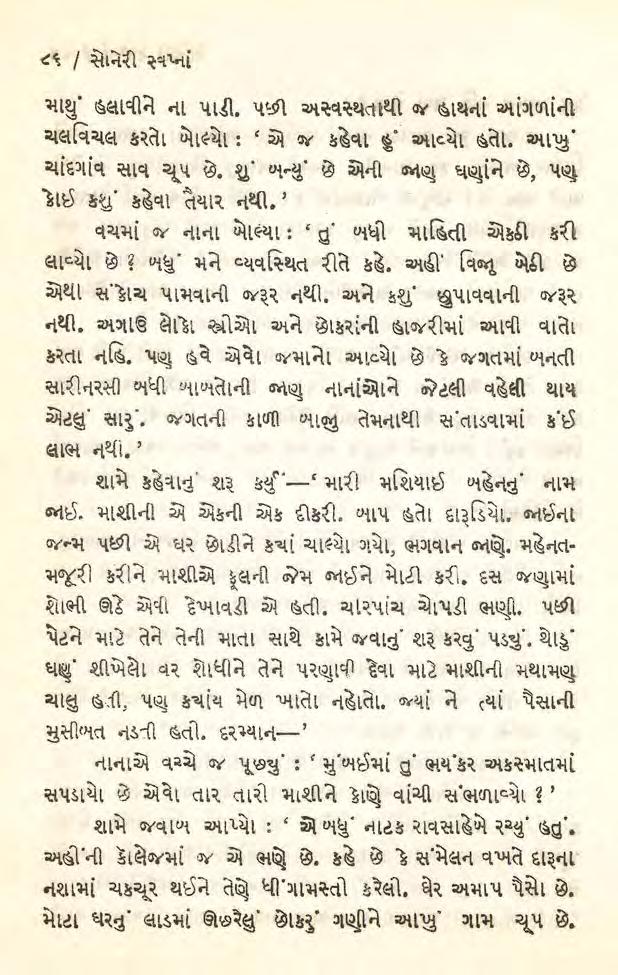 ૮૬ / સોનેરી સ્વપ્નાં
માથું હલાવીને ના પાડી. પછી અસ્વસ્થતાથી જ હાથનાં આંગળાંની
ચલવિચલ કરતો બોલ્યો : ‘ એ જ કહેવા હું આવ્યો હતો. આખું
ચાંદગાંવ સાવ ચૂપ છે. શું બન્યું છે એની જાણ ઘણાંને છે, પણ
કોઈ કશું કહેવા તૈયાર નથી.’
વચમાં જ નાના બોલ્યા : ‘ તું બધી માહિતી એકઠી કરી
લાવ્યો છે ? બધું મને વ્યવસ્થિત રીતે કહે. અહીં વિજૂ બેઠી છે
એથી સંકોચ પામવાની જરૂર નથી. અને કશું છુપાવવાની જરૂર
નથી. અગાઉ લોકો સ્ત્રીઓ અને છોકરાંની હાજરીમાં આવી વાતો
કરતા નહિ. પણ હવે એવો જમાનો આવ્યો છે કે જગતમાં બનતી
સારીનરસી બધી બાબતોની જાણ નાનાંઓને જેટલી વહેલી થાય
એટલું સારું. જગતની કાળી બાજુ તેમનાથી સંતાડવામાં કંઈ
લાભ નથી.’
શામે કહેવાનું શરૂ કર્યું—‘ મારી મશિયાઈ બહેનનું નામ
જાઈ. માશીની એ એકની એક દીકરી. બાપ હતો દારૂડિયો. જાઈના
જન્મ પછી એ ઘર છોડીને કયાં ચાલ્યો ગયો, ભગવાન જાણે. મહેનત-
મજૂરી કરીને માશીએ ફૂલની જેમ જાઈને મોટી કરી. દસ જણામાં
શોભી ઊઠે એવી દેખાવડી એ હતી. ચારપાંચ ચોપડી ભણી. પછી
પેટને માટે તેને તેની માતા સાથે કામે જવાનું શરૂ કરવું પડયું. થોડું
ઘણું શીખેલો વર શોધીને તેને પરણાવી દેવા માટે માશીની મથામણ
ચાલુ હતી, પણ કયાંય મેળ ખાતો નહોતો. જ્યાં ને ત્યાં પૈસાની
મુસીબત નડતી હતી. દરમ્યાન—’
નાનાએ વચ્ચે જ પૂછયું : ‘ મુંબઈમાં તું ભયંકર અકસ્માતમાં
સપડાયો છે એવો તાર તારી માશીને કોણે વાંચી સંભળાવ્યો ?’
શામે જવાબ આપ્યો : ‘ એ બધું નાટક રાવસાહેબે રચ્યું હતું.
અહીંની કૉલેજમાં જ એ ભણે છે. કહે છે કે સંમેલન વખતે દારૂના
નશામાં ચકચૂર થઈને તેણે ધીંગામસ્તી કરેલી. ઘેર અમાપ પૈસો છે.
મોટા ઘરનું લાડમાં ઊછરેલું છોકરું ગણીને આખું ગામ ચૂપ છે.